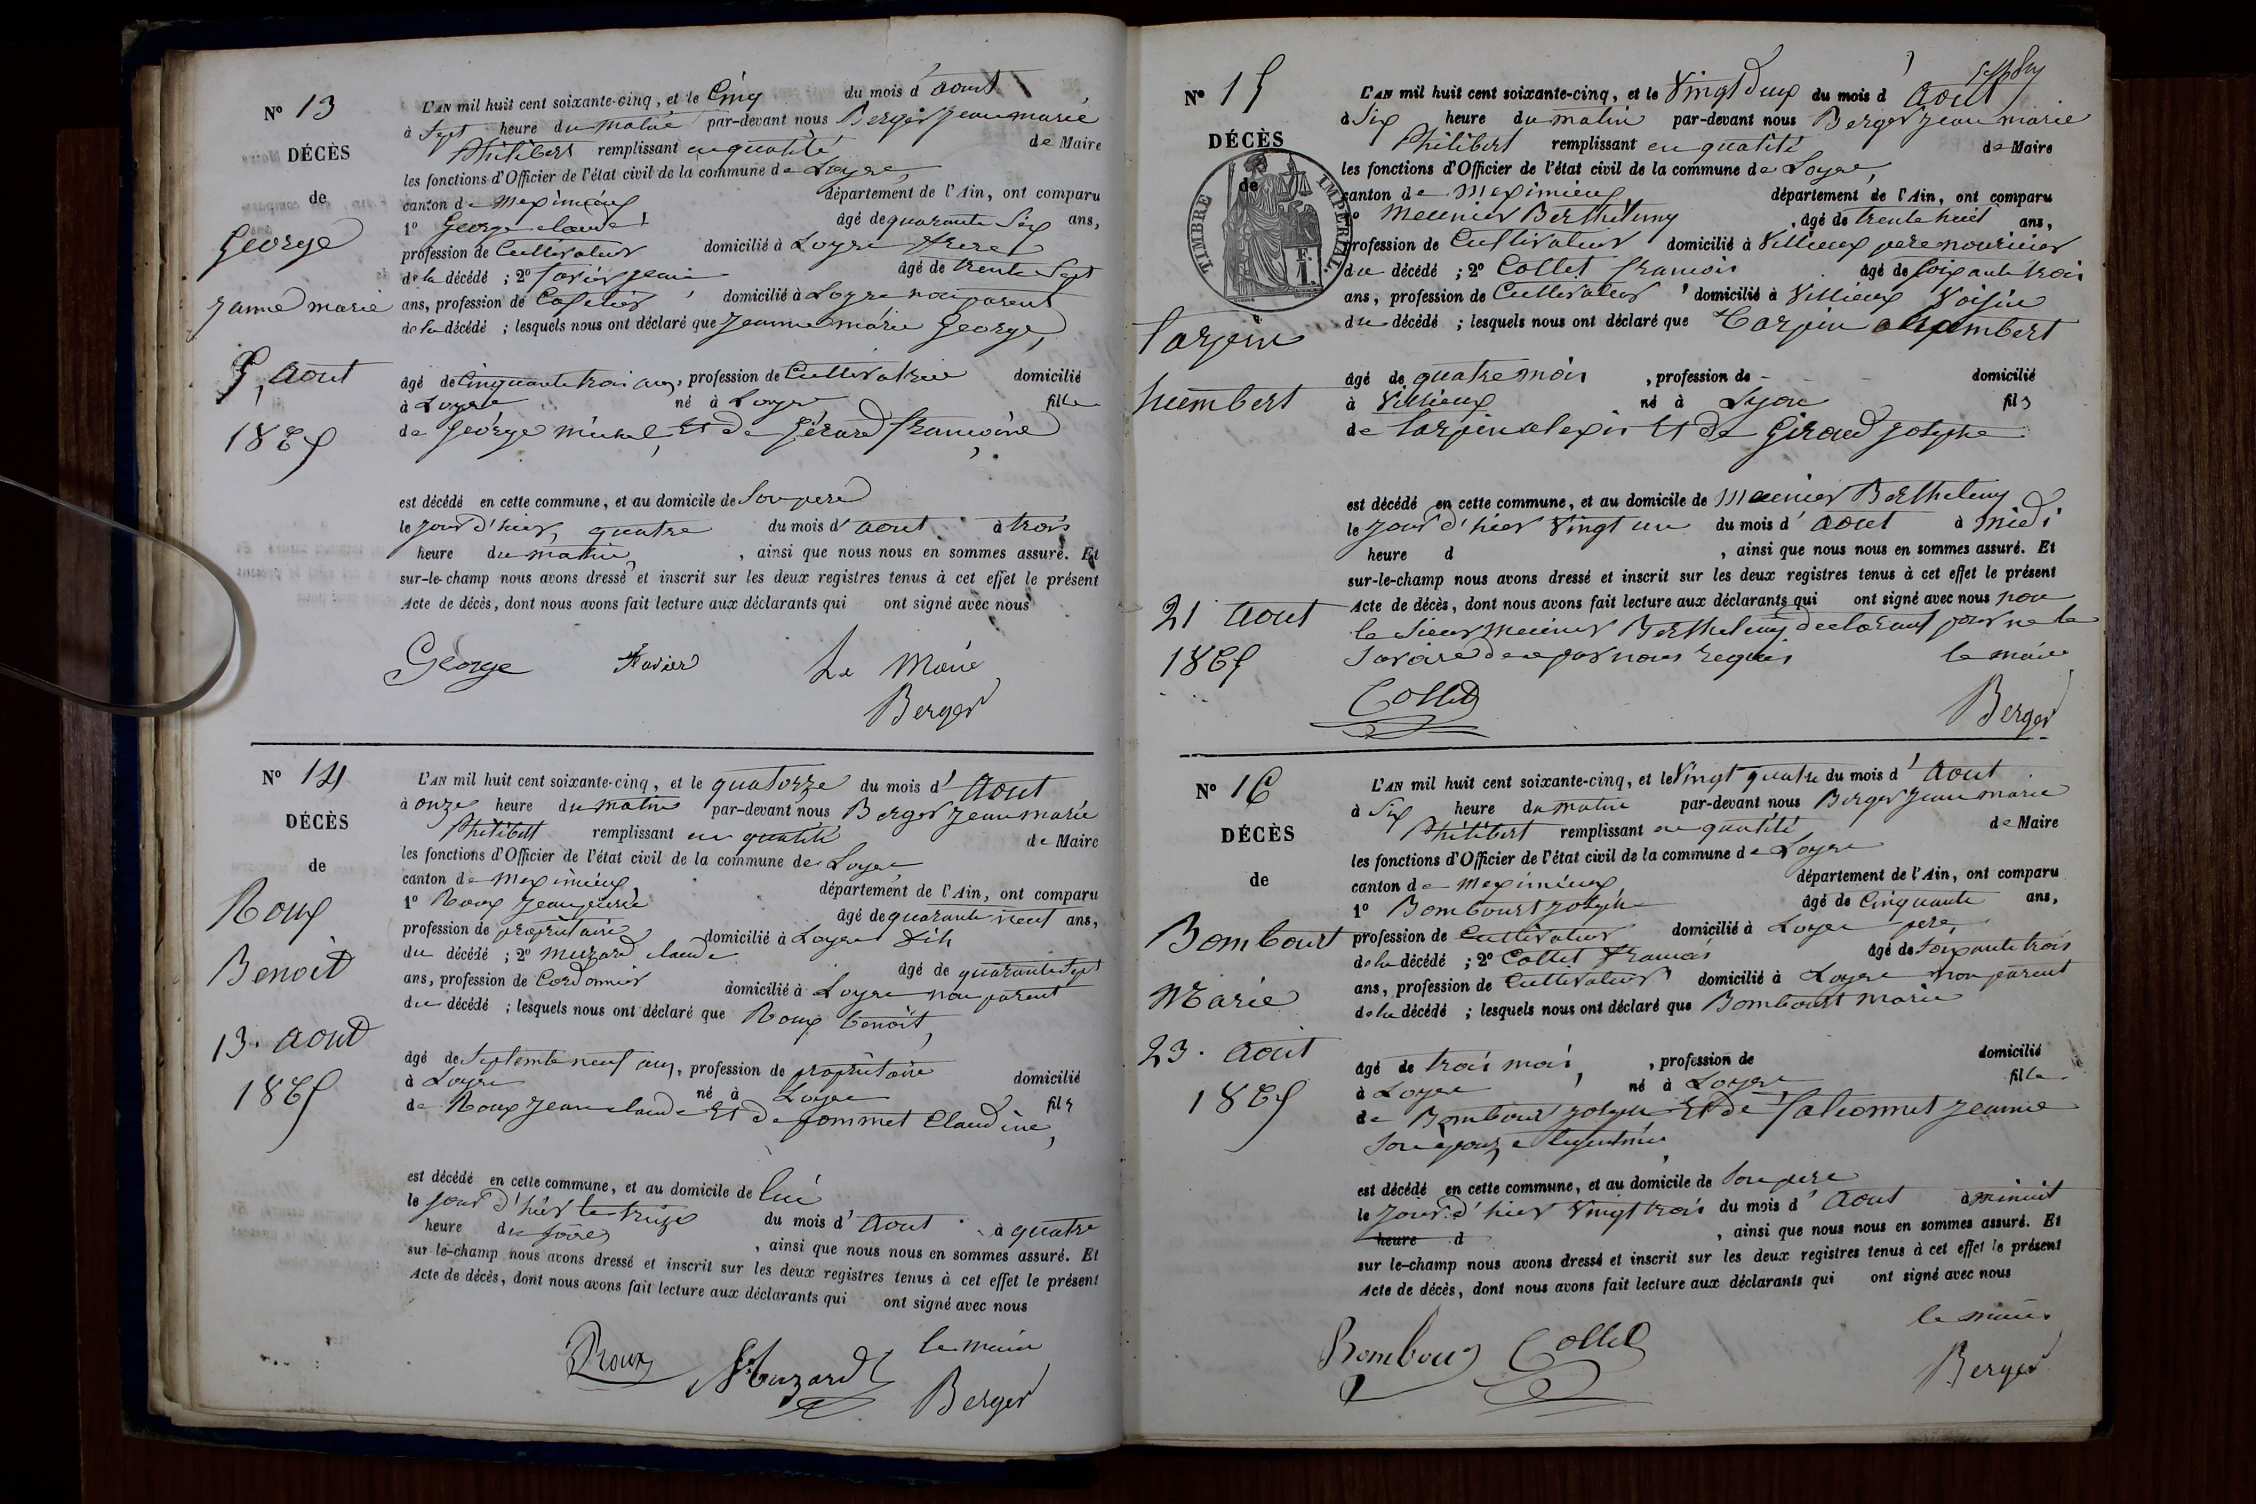 N° 13
DÉCÈS
de
George
janne marie
5, Aout
1865
L'AN mil huit cent soixante-cinq, et le Cinq du mois d'aout
à Sept heure du matin par-devant nous Berger jean marie
Philibert remplissant en qualité de Maire
les fonctions d'Officier de l'état civil de la commune de Loyes,
canton de Meximieux département de l'Ain, ont comparu
1° George claude âgé de quarante Six ans,
profession de Cultivateur domicilié à Loyes frere
de la décédé ; 2° favier jean âgé de trente Sept
ans, profession de domicilié à Loyes non parent
de la décédé ; lesquels nous ont déclaré que jeanne marie George,
âgé de Cinquante trois ans, profession de Cultivatrice domicilié
à Loyes né à Loyes fille
de George michel, Et de Gérard francoise,
est décédé en cette commune, et au domicile de Son pere
le jour d'hier, quatre du mois d'aout à trois
heure du matin, ainsi que nous nous en sommes assuré. Et
sur-le-champ nous avons dressé et inscrit sur les deux registres tenus à cet effet le présent
Acte de décès, dont nous avons fait lecture aux déclarants qui ont signé avec nous
George Favier Le Maire
Berger
N° 14
DÉCÈS
de
Roux
Benoit
13. aout
1865
L'AN mil huit cent soixante-cinq, et le quatorze du mois d'Aout
à onze heure du matin par-devant nous Berger jean marie
Philibert remplissant en qualité de Maire
les fonctions d'Officier de l'état civil de la commune de Loyes
canton de Meximieux département de l'Ain, ont comparu
1° Roux jean pierre âgé de quarante neuf ans,
profession de propriétaire domicilié à Loyes fils
du décédé ; 2° muzard claude âgé de quarante Sept
ans, profession de Cordonnier domicilié à Loyes non parent
du décédé ; lesquels nous ont déclaré que Roux benoit,
âgé de Septante neuf ans, profession de propriétaire domicilié
à Loyes né à Loyes fils
de Roux jean claude Et de pommet Claudine,
est décédé en cette commune, et au domicile de lui
le jour d'hier le treize du mois d'Aout à quatre
heure du soire, ainsi que nous nous en sommes assuré. Et
sur-le-champ nous avons dressé et inscrit sur les deux registres tenus à cet effet le présent
Acte de décès, dont nous avons fait lecture aux déclarants qui ont signé avec nous
Roux Muzard le maire
Berger
N° 15
DÉCÈS
de
TIMBRE IMPÉRIAL
Tarpin
humbert
21 Aout
1865
L'AN mil huit cent soixante-cinq, et le Vingt deux du mois d'Aout
à Six heure du matin par-devant nous Berger jean marie
Philibert remplissant en qualité de Maire
les fonctions d'Officier de l'état civil de la commune de Loyes,
canton de Meximieux département de l'Ain, ont comparu
1° Meunier Berthelemy, âgé de trente huit ans,
profession de Cultivateur domicilié à Villieux pere nouricier
du décédé ; 2° Collet francois âgé de Soixante trois
ans, profession de Cultivateur domicilié à Villieux Voisin
du décédé ; lesquels nous ont déclaré que Tarpin humbert
âgé de quatre mois, profession de - domicilié
à Villieux né à Lyon fils
de Tarpin alexis Et de Giraud josephe
est décédé en cette commune, et au domicile de Meunier Berthelemy
le jour d'hier Vingt un du mois d'Aout à midi
heure d , ainsi que nous nous en sommes assuré. Et
sur-le-champ nous avons dressé et inscrit sur les deux registres tenus à cet effet le présent
Acte de décès, dont nous avons fait lecture aux déclarants qui ont signé avec nous non
le Sieur Meunier Berthelemy declarant pour ne le
Savoire de ce par nous requis le maire
Collet
Berger
N° 16
DÉCÈS
de
Bombourt
Marie
23. Aout
1865
L'AN mil huit cent soixante-cinq, et le Vingt quatre du mois d'Aout
à Six heure du matin par-devant nous Berger jean marie
Philibert remplissant en qualité de Maire
les fonctions d'Officier de l'état civil de la commune de Loyes
canton de Meximieux département de l'Ain, ont comparu
1° Bombourt joseph âgé de Cinquante ans,
profession de Cultivateur domicilié à Loyes pere,
de la décédé ; 2° Collet francois âgé de Soixante trois
ans, profession de Cultivateur domicilié à Loyes non parent
de la décédé ; lesquels nous ont déclaré que Bombourt marie
âgé de trois mois, profession de domicilié
à Loyes né à Loyes fille
de Bombourt joseph Et de jeanne
Son épouse legitime
est décédé en cette commune, et au domicile de Son pere
le jour d'hier Vingt trois du mois d'Aout à minuit
heure d , ainsi que nous nous en sommes assuré. Et
sur le-champ nous avons dressé et inscrit sur les deux registres tenus à cet effet le présent
Acte de décès, dont nous avons fait lecture aux déclarants qui ont signé avec nous
le maire
Bombour Collet
Berger